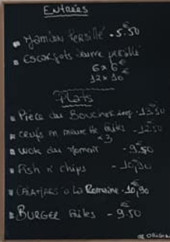 Entrées
Jambon Persillé - 5.50€
Escargots beurre persillé
6 x 6€
12 x 10€
Plats
Pièce du Boucher - 13.50
Œufs en meurette frites - 12.50
Wok du moment - 9.50
Fish n' chips - 10,90
à la Romaine - 10,90
Burger Frites - 9.50